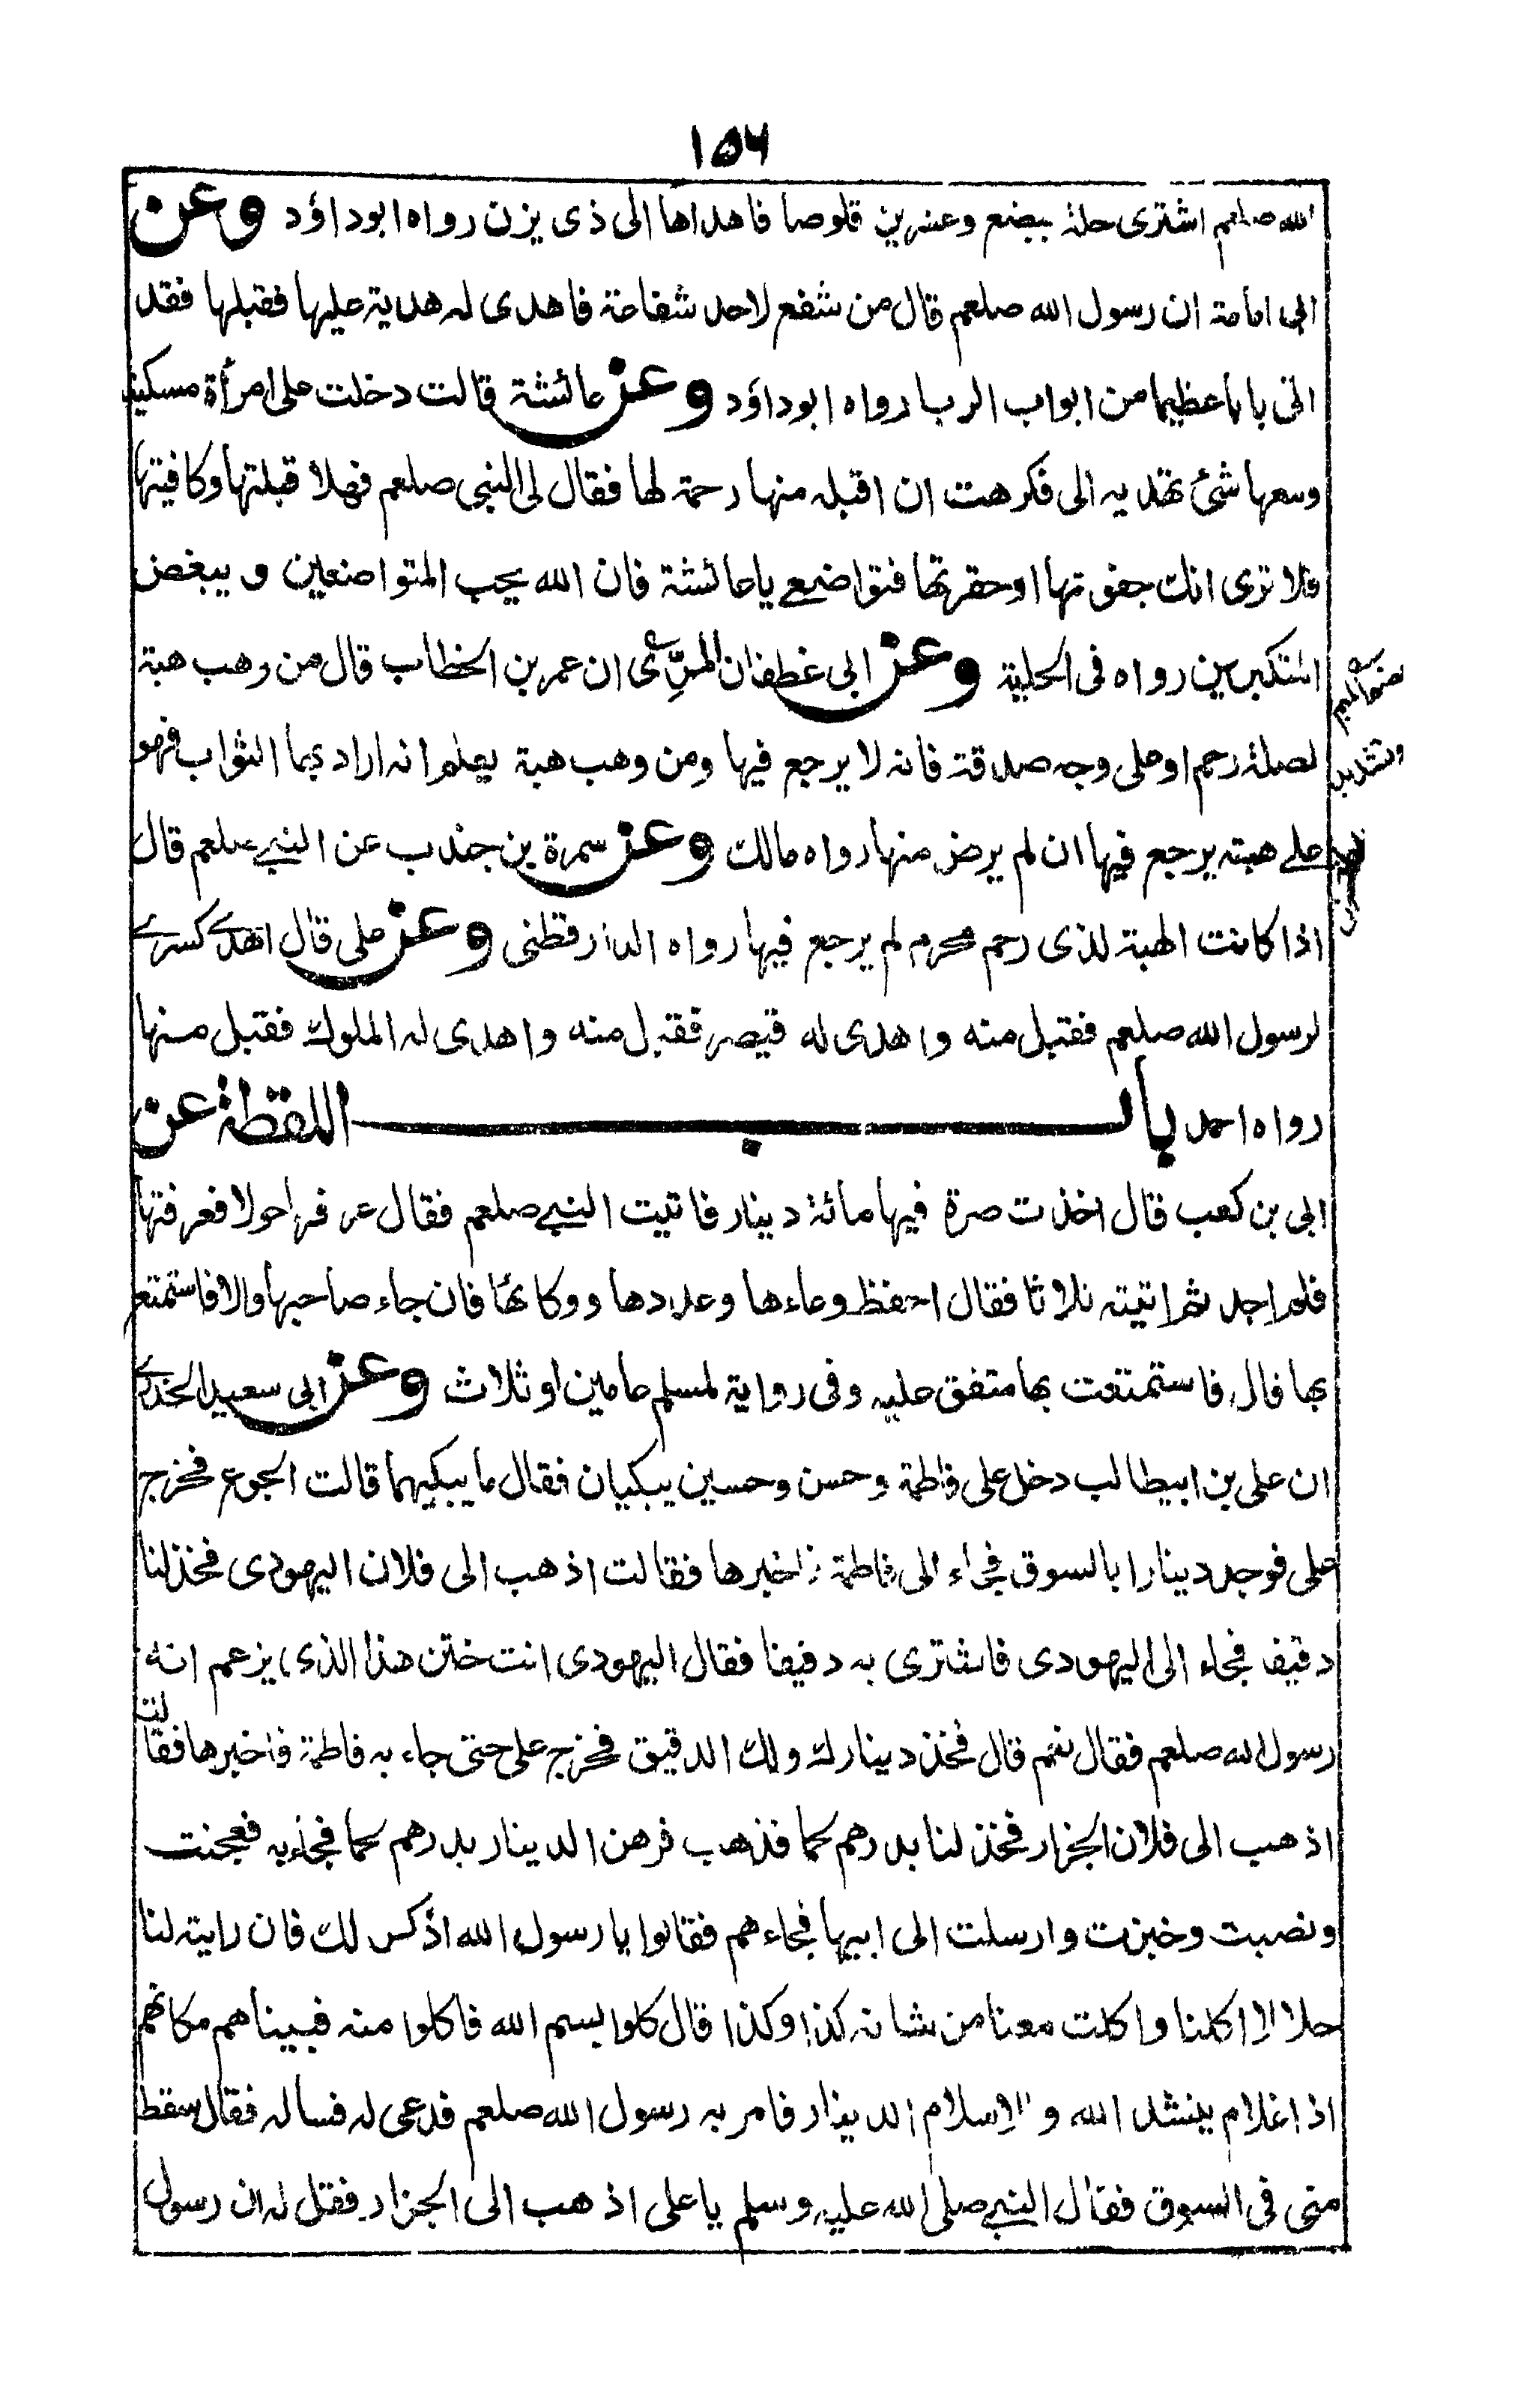 ١٥٦
الله صلعم اشترى حلة ببضع وعشرين قلوصا فاهداها الى ذى يزن رواه ابوداؤد وعن
ابى امامة ان رسول الله صلعم قال من شفع لاحد شفاعة فاهدى له هدية عليها فقبلها فقد
اتى بابا عظيما من ابواب الربا رواه ابوداؤد وعن عائشة قالت دخلت على امرأة مسكينة
ومعها شئ تهديه الى فكرهت ان اقبله منها رحمة لها فقال لى النبى صلعم فهلا قبلتها وكافيتها
فلا ترى انك جفوتها او حقرتها فتواضعى يا عائشة فان الله يحب المتواضعين و يبغض
المتكبرين رواه فى الحلية وعن ابى غطفان المرّى ان عمر بن الخطاب قال من وهب هبة
لصلة رحم او على وجه صدقة فانه لا يرجع فيها ومن وهب هبة يعلم انه اراد بها الثواب فهو
على هبته يرجع فيها ان لم يرض منها رواه مالك وعن سمرة بن جندب عن النبى صلعم قال
اذا كانت الهبة لذى رحم محرم لم يرجع فيها رواه الدارقطنى وعن على قال اهدى كسرى
لرسول الله صلعم فقبل منه واهدى له قيصر فقبل منه واهدى له الملوك فقبل منها
رواه احمد باب اللقطة عن
ابى بن كعب قال اخذت صرة فيها مائة دينار فاتيت النبى صلعم فقال عرفها حولا فعرفتها
فلم اجد ثم اتيته ثلاثا فقال احفظ وعاءها وعددها ووكائها فان جاء صاحبها والا فاستمتع
بها قال فاستمتعت بها متفق عليه وفى رواية لمسلم عامين او ثلاث وعن ابى سعيد الخدرى
ان على بن ابيطالب دخل على فاطمة وحسن وحسين يبكيان فقال ما يبكيهما قالت الجوع فخرج
على فوجد دينارا بالسوق فجاء الى فاطمة فاخبرها فقالت اذهب الى فلان اليهودى فخذ لنا
دقيقا فجاء الى اليهودى فاشترى به دقيقا فقال اليهودى انت ختن هذا الذى يزعم انه
رسول الله صلعم فقال نعم قال فخذ دينارك ولك الدقيق فخرج على حتى جاء به فاطمة فاخبرها فقالت
اذهب الى فلان الجزار فخذ لنا بدرهم لحما فذهب فرهن الدينار بدرهم لحما فجاء به فعجنت
ونصبت وخبزت وارسلت الى ابيها فجاءهم فقالوا يا رسول الله اذكر لك فان رايته لنا
حلالا اكلنا واكلت معنا من شانه كذا وكذا قال كلوا بسم الله فاكلوا منه فبيناهم مكانهم
اذا غلام ينشد الله والاسلام الدينار فامر به رسول الله صلعم فدعى له فساله فقال سقط
منى فى السوق فقال النبى صلى الله عليه وسلم يا على اذهب الى الجزار فقل له ان رسول